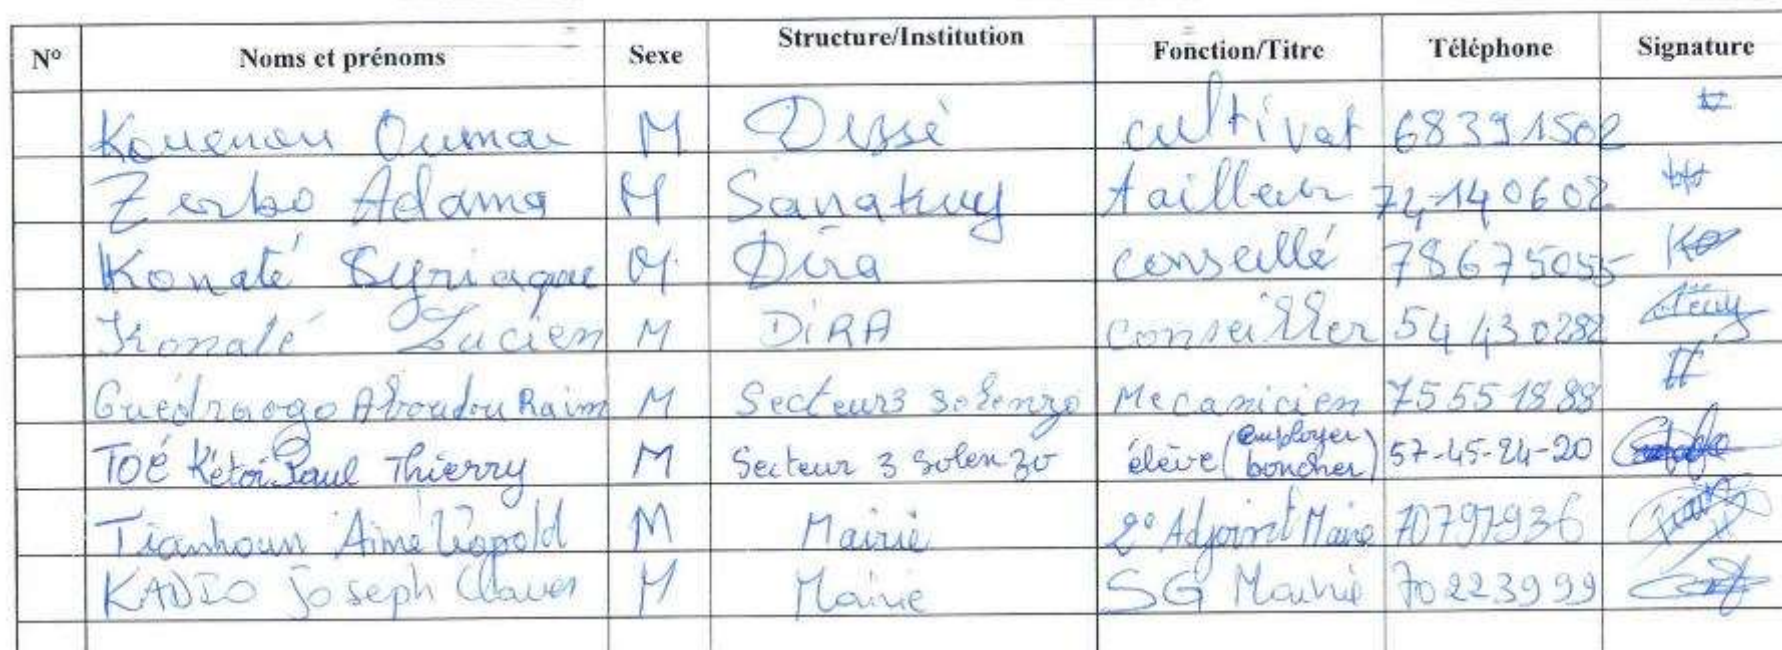 N° Noms et prénoms Sexe Structure/Institution Fonction/Titre Téléphone Signature
Kouenou Oumar M Dissé cultivat 68391502
Zerbo Adama M Sanakuy tailleur 74-140602
Konaté Syriaque M Dira conseillé 78675055
Konaté Lucien M DiRA conseiller 54430282
Guédraogo Aboudou Raim M Secteur3 Solenzo Mecanicien 75551888
TOÉ Kétoi Paul Thierry M Secteur 3 Solenzo élève (employer boucher) 57-45-24-20
Tianhoun Aimé Léopold M Mairie 2° Adjoint Maire 70797936
KADIO Joseph Claver M Mairie SG Mairie 70223999